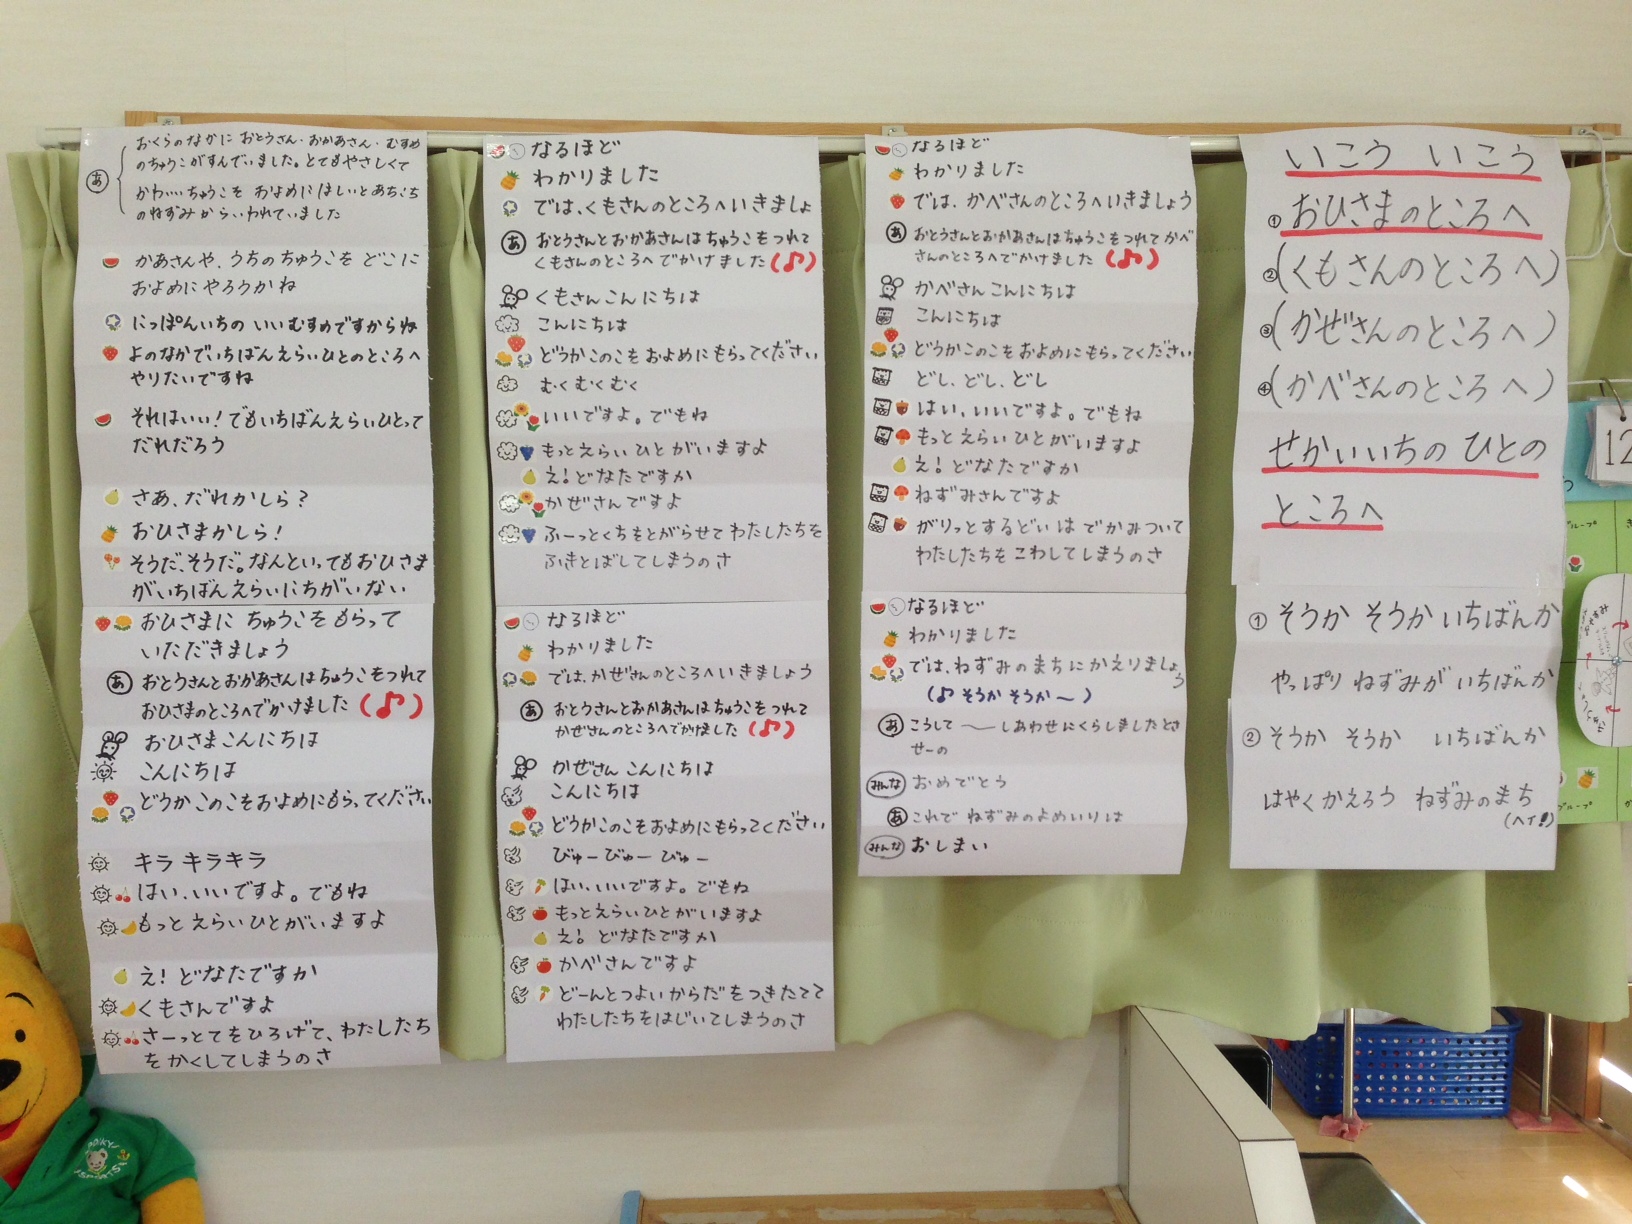 あ
おくらのなかに おとうさん・おかあさん・むすめ
のちゅうこがすんでいました。とてもやさしくて
かわいいちゅうこを およめにほしいとあちこち
のねずみからいわれていました
かあさんや、うちのちゅうこを どこに
およめにやろうかね
にっぽんいちの いいむすめですからね
よのなかでいちばんえらいひとのところへ
やりたいですね
それはいい!でもいちばんえらいひとって
だれだろう
さあ、だれかしら?
おひさまかしら!
そうだ、そうだ。なんといってもおひさま
がいちばんえらいにちがいない
おひさまに ちゅうこをもらって
いただきましょう
あ おとうさんとおかあさんはちゅうこをつれて
おひさまのところへでかけました(♪)
おひさまこんにちは
こんにちは
どうかこのこをおよめにもらってください
キラキラキラ
はい、いいですよ。でもね
もっとえらいひとがいますよ
え!どなたですか
くもさんですよ
さーっとてをひろげて、わたしたち
をかくしてしまうのさ
なるほど
わかりました
では、くもさんのところへいきましょ
あ おとうさんとおかあさんはちゅうこをつれて
くもさんのところへでかけました(♪)
くもさんこんにちは
こんにちは
どうかこのこをおよめにもらってください
むくむくむく
いいですよ。でもね
もっとえらいひとがいますよ
え!どなたですか
かぜさんですよ
ふーっとくちをとがらせてわたしたちを
ふきとばしてしまうのさ
なるほど
わかりました
では、かぜさんのところへいきましょう
あ おとうさんとおかあさんはちゅうこをつれて
かぜさんのところへでかけました(♪)
かぜさんこんにちは
こんにちは
どうかこのこをおよめにもらってください
びゅーびゅーびゅー
はい、いいですよ。でもね
もっとえらいひとがいますよ
え!どなたですか
かべさんですよ
どーんとつよいからだをつきたてて
わたしたちをはじいてしまうのさ
なるほど
わかりました
では、かべさんのところへいきましょう
あ おとうさんとおかあさんはちゅうこをつれてかべ
さんのところへでかけました(♪)
かべさんこんにちは
こんにちは
どうかこのこをおよめにもらってください
どし、どし、どし
はい、いいですよ。でもね
もっとえらいひとがいますよ
え!どなたですか
ねずみさんですよ
がりっとするどいはでかみついて
わたしたちをこわしてしまうのさ
なるほど
わかりました
では、ねずみのまちにかえりましょう
(♪そうかそうか〜)
あ こうして〜しあわせにくらしましたとさ
せーの
みんな おめでとう
あ これでねずみのよめいりは
みんな おしまい
いこう いこう
①おひさまのところへ
②(くもさんのところへ)
③(かぜさんのところへ)
④(かべさんのところへ)
せかいいちのひとの
ところへ
①そうか そうか いちばんか
やっぱり ねずみが いちばんか
②そうか そうか いちばんか
はやくかえろう ねずみのまち
(ヘイ!)
12
グループ
グループ
SPORTS